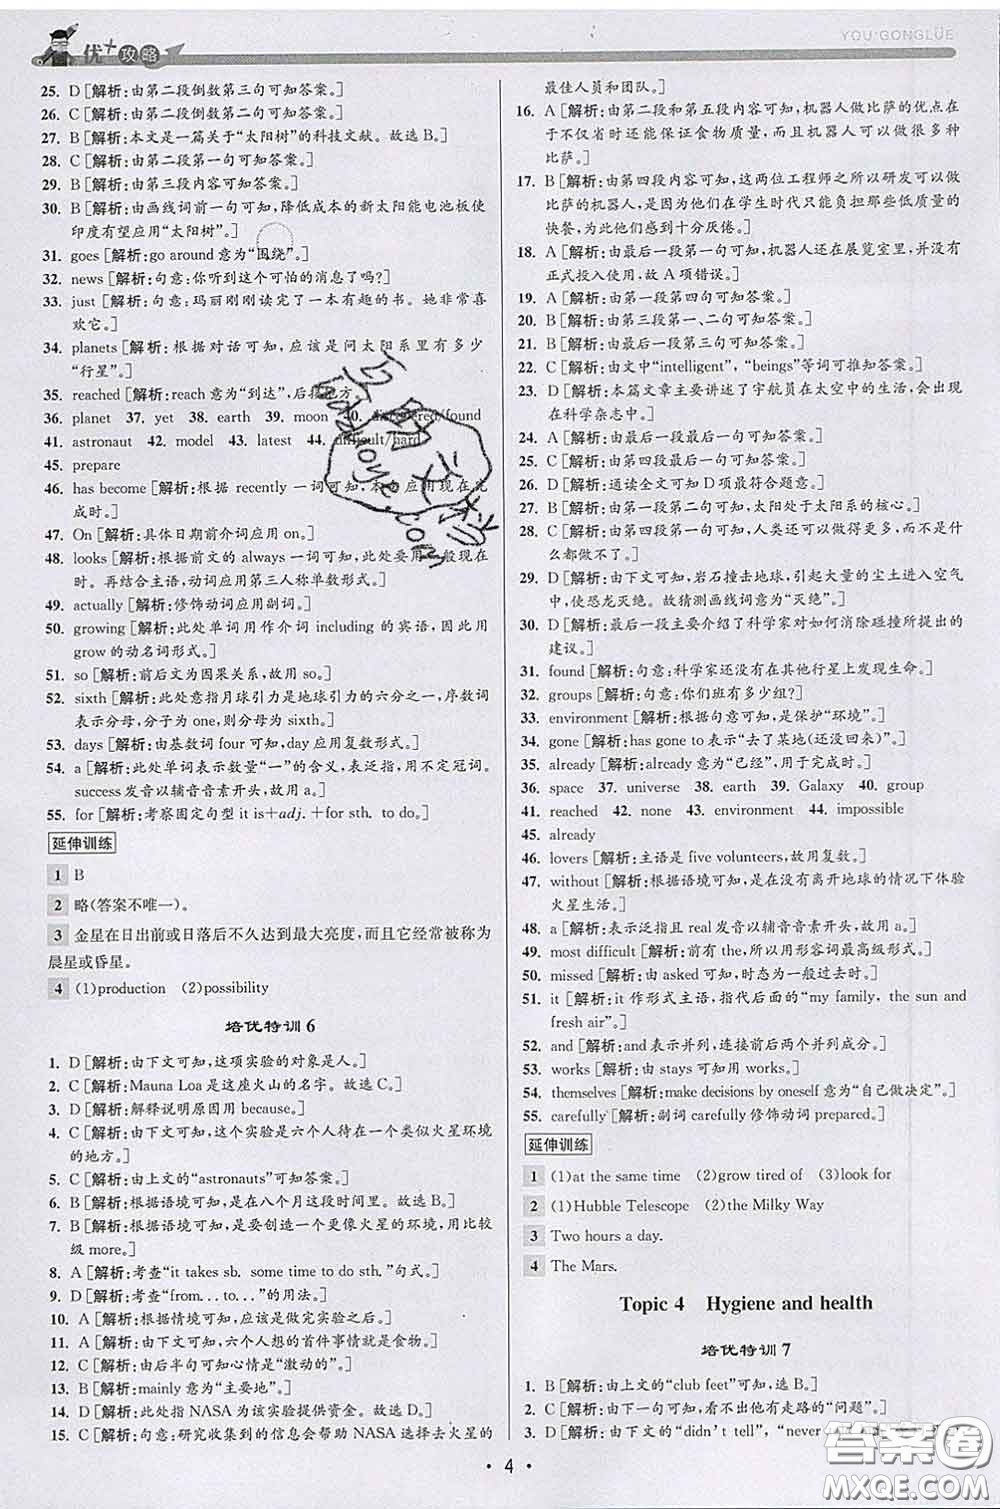 优+攻略
YOU+GONGLÜE
25. D [解析:由第二段倒数第三句可知答案。]
26. C [解析:由第二段倒数第二句可知答案。]
27. B [解析:本文是一篇关于“太阳树”的科技文献。故选B。]
28. C [解析:由第二段第一句可知答案。]
29. B [解析:由第三段内容可知答案。]
30. B [解析:由画线词前一句可知,降低成本的新太阳能电池板使
印度有望应用“太阳树”。]
31. goes [解析:go around意为“围绕”。]
32. news [解析:句意:你听到这个可怕的消息了吗?]
33. just [解析:句意:玛丽刚刚读完了一本有趣的书。她非常喜
欢它。]
34. planets [解析:根据对话可知,应该是问太阳系里有多少
“行星”。]
35. reached [解析:reach意为“到达”,后接地方。]
36. planet 37. yet 38. earth 39. moon 40. discovered/found
41. astronaut 42. model 43. latest 44. difficult/hard
45. prepare
46. has become [解析:根据 recently 一词可知,本句应用现在完
成时。]
47. On [解析:具体日期前介词应用on。]
48. looks [解析:根据前文的 always 一词可知,此处要用一般现在
时。再结合主语,动词应用第三人称单数形式。]
49. actually [解析:修饰动词应用副词。]
50. growing [解析:此处单词用作介词 including 的宾语,因此用
grow 的动名词形式。]
51. so [解析:前后文为因果关系,故用 so。]
52. sixth [解析:此处意指月球引力是地球引力的六分之一,序数词
表示分母,分子为 one,则分母为 sixth。]
53. days [解析:由基数词 four 可知,day 应用复数形式。]
54. a [解析:此处单词表示数量“一”的含义,表泛指,用不定冠词。
success 发音以辅音音素开头,故用 a。]
55. for [解析:考察固定句型 it is+adj. +for sth. to do。]
延伸训练
1 B
2 略(答案不唯一)。
3 金星在日出前或日落后不久达到最大亮度,而且它经常被称为
晨星或昏星。
4 (1)production (2)possibility
培优特训 6
1. D [解析:由下文可知,这项实验的对象是人。]
2. C [解析:Mauna Loa 是这座火山的名字。故选C。]
3. D [解析:解释说明原因用 because。]
4. C [解析:由下文可知,这个实验是六个人待在一个类似火星环境
的地方。]
5. C [解析:由上文的“astronauts”可知答案。]
6. B [解析:根据语境可知,是在八个月这段时间里。故选B。]
7. B [解析:根据语境可知,是要创造一个更像火星的环境,用比较
级 more。]
8. A [解析:考查“it takes sb. some time to do sth.”句式。]
9. D [解析:考查“from... to...”的用法。]
10. A [解析:根据情境可知,应该是做完实验之后。]
11. A [解析:由下文可知,六个人想的首件事情就是食物。]
12. C [解析:由后半句可知心情是“激动的”。]
13. B [解析:mainly 意为“主要地”。]
14. D [解析:此处指 NASA 为该实验提供资金。故选 D。]
15. C [解析:句意:研究收集到的信息会帮助 NASA 选择去火星的
最佳人员和团队。]
16. A [解析:由第二段和第五段内容可知,机器人做比萨的优点在
于不仅省时还能保证食物质量,而且机器人可以做很多种
比萨。]
17. B [解析:由第四段内容可知,这两位工程师之所以研发可以做
比萨的机器人,是因为他们在学生时代只能点非常有限的
快餐,为此他们感到十分厌倦。]
18. A [解析:由最后一段第一句可知,机器人还在展览室里,并没有
正式投入使用,故 A 项错误。]
19. A [解析:由第一段第四句可知答案。]
20. B [解析:由第三段第一、二句可知答案。]
21. B [解析:由第四段最后一句可知答案。]
22. C [解析:由文中“intelligent”,“beings”等词可推知答案。]
23. D [解析:本篇文章主要讲述了宇航员在太空中的生活,会出现
在科学杂志中。]
24. A [解析:由最后一段最后一句可知答案。]
25. C [解析:由第四段最后一句可知答案。]
26. D [解析:通读全文可知 D 项最符合题意。]
27. B [解析:由第一段第二句可知,太阳处于太阳系的核心。]
28. C [解析:由第四段第一句可知,人类还可以做得更多,而不是什
么都做不了。]
29. D [解析:由下文可知,岩石撞击地球,引起大量的尘土进入空气
中,使恐龙灭绝。故猜测画线词意为“灭绝”。]
30. D [解析:最后一段主要介绍了科学家对如何消除碰撞所提出的
建议。]
31. found [解析:句意:科学家还没有在其他行星上发现生命。]
32. groups [解析:句意:你们班有多少组?]
33. environment [解析:根据句意可知,是保护“环境”。]
34. gone [解析:has gone to 表示“去了某地(还没回来)”。]
35. already [解析:already 意为“已经”,用于完成时。]
36. space 37. universe 38. earth 39. Galaxy 40. group
41. reached 42. none 43. environment 44. impossible
45. already
46. lovers [解析:主语是 five volunteers,故用复数。]
47. without [解析:根据语境可知,是在没有离开地球的情况下体验
火星生活。]
48. a [解析:表示泛指且 real 发音以辅音音素开头,故用 a。]
49. most difficult [解析:前有 the,所以用形容词最高级形式。]
50. missed [解析:由 asked 可知,时态为一般过去时。]
51. it [解析:it 作形式主语,指代后面的“my family, the sun and
fresh air”。]
52. and [解析:and 表示并列,连接前后两个并列成分。]
53. works [解析:由 stays 可知用 works。]
54. themselves [解析:make decisions by oneself 意为“自己做决定”。]
55. carefully [解析:副词 carefully 修饰动词 prepared。]
延伸训练
1 (1)at the same time (2)grow tired of (3)look for
2 (1)Hubble Telescope (2)the Milky Way
3 Two hours a day.
4 The Mars.
Topic 4 Hygiene and health
培优特训 7
1. B [解析:由上文的“club feet”可知,选 B。]
2. C [解析:由下一句可知,她不知道他有走路的“问题”。]
3. D [解析:由下文的“didn't tell”,“never
• 4 •
答案圈
MXQE.COM